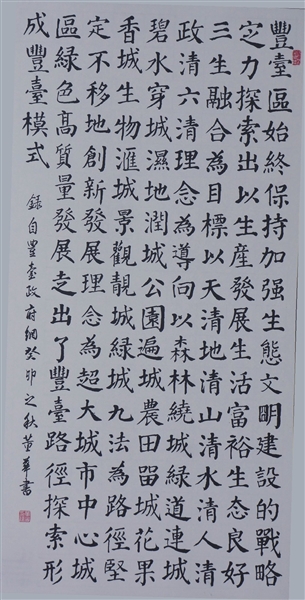 豐臺區始終保持加强生態文明建設的戰略
定力探索出以生産發展生活富裕生态良好
三生融合為目標以天清地清山清水清人清
政清六清理念為導向以森林繞城緑道連城
碧水穿城濕地潤城公園遍城農田留城花果
香城生物滙城景觀靚城緑城九法為路徑堅
定不移地創新發展理念為超大城市中心城
區緑色高質量發展走出了豐臺路徑探索形
成豐臺模式
録自豐臺政府網癸卯之秋董華書